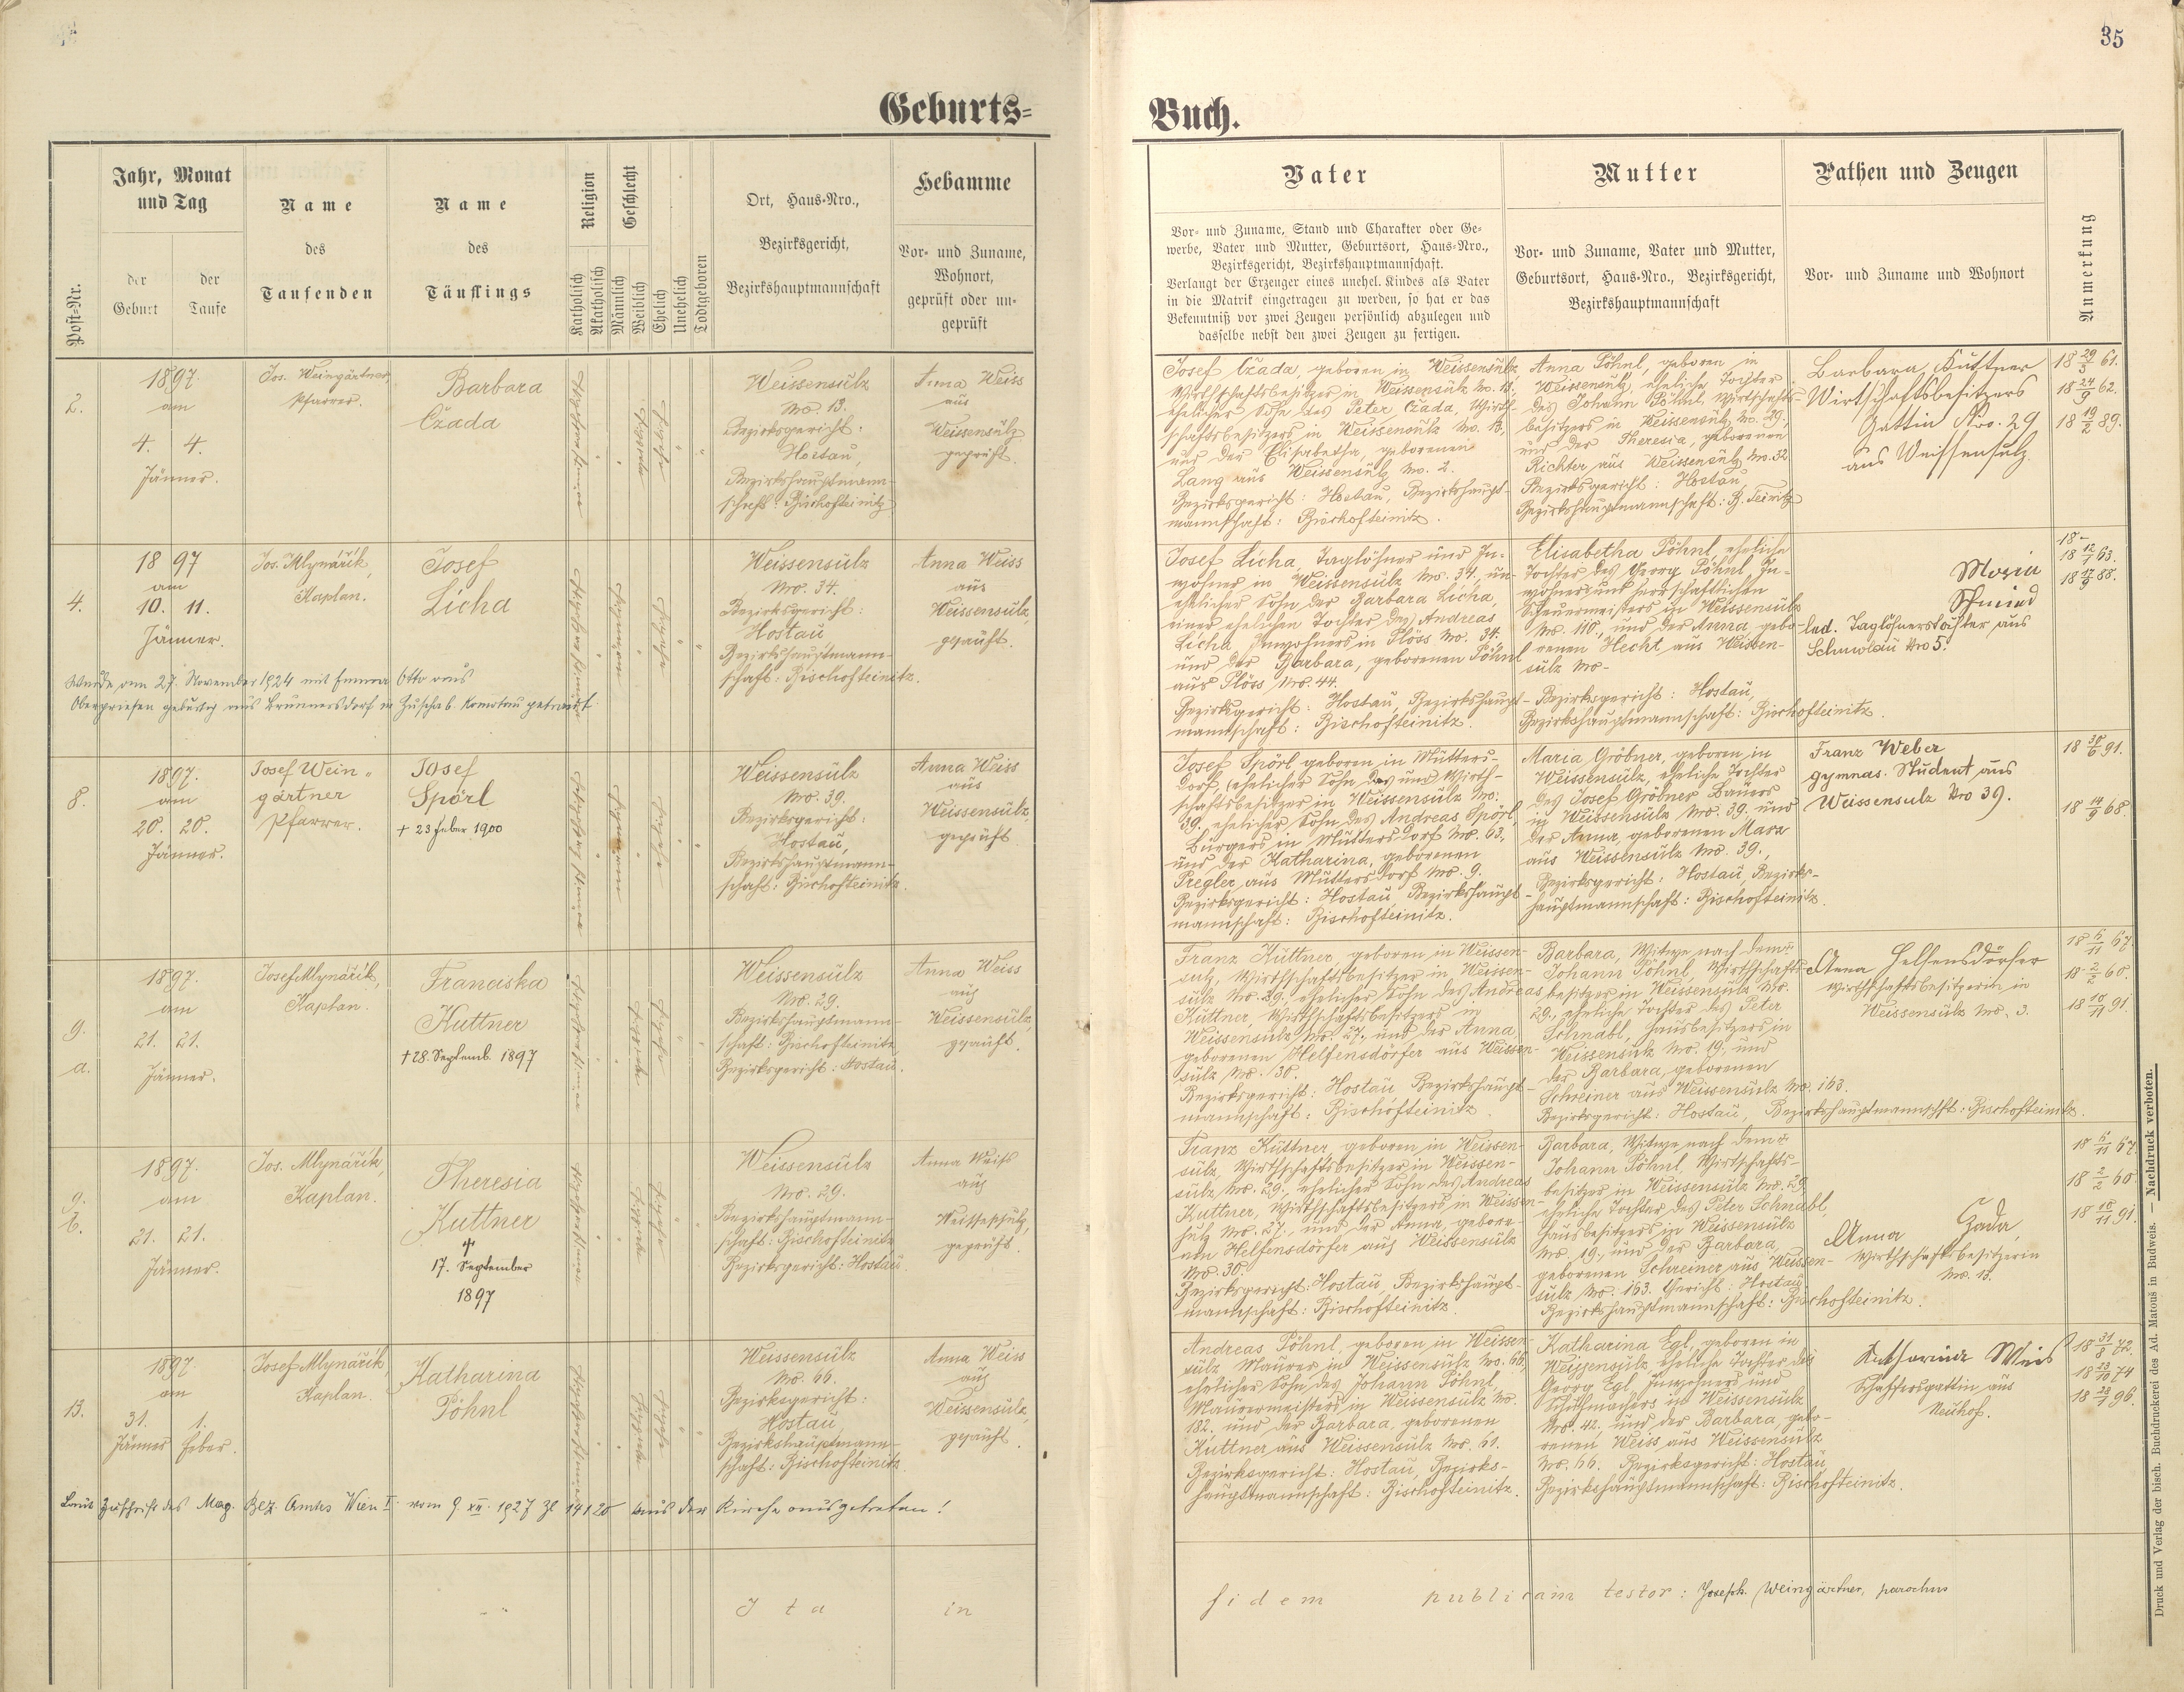 35
Geburts-
Buch.
Post-Nr.
Jahr, Monat
und Tag
der
Geburt
der
Taufe
Name
des
Taufenden
Name
des
Täuflings
Religion
Katholisch
Akatholisch
Geschlecht
Männlich
Weiblich
Ehelich
Unehelich
Todtgeboren
Ort, Haus-Nro.,
Bezirksgericht,
Bezirkshauptmannschaft
Hebamme
Vor- und Zuname,
Wohnort,
geprüft oder un-
geprüft
Vater
Vor- und Zuname, Stand und Charakter oder Ge-
werbe, Vater und Mutter, Geburtsort, Haus-Nro.,
Bezirksgericht, Bezirkshauptmannschaft.
Verlangt der Erzeuger eines unehel. Kindes als Vater
in die Matrik eingetragen zu werden, so hat er das
Bekenntniß vor zwei Zeugen persönlich abzulegen und
dasselbe nebst den zwei Zeugen zu fertigen.
Mutter
Vor- und Zuname, Vater und Mutter,
Geburtsort, Haus-Nro., Bezirksgericht,
Bezirkshauptmannschaft
Pathen und Zeugen
Vor- und Zuname und Wohnort
Anmerkung
2.
1897.
am
4. 4.
Jänner.
Jos. Weingärtner,
Pfarrer.
Barbara
Czada
Weissensulz
Nro. 13.
Bezirksgericht:
Hostau,
Bezirkshauptmann-
schaft: Bischofteinitz
Anna Weiss
aus
Weissensulz
geprüft.
Josef Czada, geboren in Weissensulz
Wirthschaftsbesitzer in Weissensulz No. 13,
ehelicher Sohn des Peter Czada, Wirth-
schaftsbesitzers in Weissensulz No. 13,
und der Elisabetha, geborenen
Lang aus Weissensulz No. 2.
Bezirksgericht: Hostau, Bezirkshaupt-
mannschaft: Bischofteinitz.
Anna Pöhnl, geboren in
Weissensulz, eheliche Tochter
des Johann Pöhnl, Wirtschafts-
besitzers in Weissensulz No. 29,
und der Theresia, geborenen
Richter aus Weissensulz No. 32
Bezirksgericht: Hostau,
Bezirkshauptmannschaft: B. Teinitz
Barbara Kuttner
Wirtschaftsbesitzers
Gattin Nro. 29
aus Weissensulz
18 29/3 61.
18 24/9 62.
18 19/2 89.
4.
1897
am
10. 11.
Jänner.
Jos. Mlynářik,
Kaplan.
Josef
Licha
Weissensulz
Nro. 34.
Bezirksgericht:
Hostau,
Bezirkshauptmann-
schaft: Bischofteinitz.
Anna Weiss
aus
Weissensulz,
geprüft.
Wurde am 27. November 1924 mit Emma Otto aus
Oberpriesen gebürtig aus Brunnersdorf in Zuschab Komotau getraut
Josef Licha, Taglöhner und In-
wohner in Weissensulz No. 34, un-
ehelicher Sohn der Barbara Licha,
einer ehelichen Tochter des Andreas
Licha Inwohners in Plöss No. 34.
und der Barbara, geborenen Pöhnl
aus Plöss Nro. 44.
Bezirksgericht: Hostau, Bezirkshaupt-
mannschaft: Bischofteinitz.
Elisabetha Pöhnl, eheliche
Tochter des Georg Pöhnl, In-
wohners und herrschaftlichen
Scheuermeisters in Weissensulz
No. 110, und der Anna gebo-
renen Hecht aus Weissen-
sulz No-
Bezirksgericht: Hostau,
Bezirkshauptmannschaft: Bischofteinitz.
Maria
Schmied
led. Taglöhnerstochter aus
Schmolau Nro 5.
18-
18 12/1 63.
18 17/9 88.
8.
1897.
am
20. 20.
Jänner.
Josef Wein-
gärtner
Pfarrer.
Josef
Spörl
+ 23 Feber 1900
Weissensulz
Nro. 39.
Bezirksgericht:
Hostau,
Bezirkshauptmann-
schaft: Bischofteinitz.
Anna Weiss
aus
Weissensulz,
geprüft
Josef Spörl geboren in Mutters-
dorf, (ehelicher Sohn des und Wirth-
schaftsbesitzer in Weissensulz No:
39. ehelicher Sohn des Andreas Spörl,
Bürgers in Muttersdorf No. 63,
und der Katharina, geborenen
Pregler aus Muttersdorf No. 9.
Bezirksgericht: Hostau, Bezirkshaupt-
mannschaft: Bischofteinitz.
Maria Gröbner, geboren in
Weissensulz, eheliche Tochter
des Josef Gröbner Bauers
in Weissensulz No. 39. und
der Anna, geborenen Marx
aus Weissensulz No. 39.,
Bezirksgericht: Hostau, Bezirks-
hauptmannschaft: Bischofteinitz.
Franz Weber
gymnas. Student aus
Weissensulz Nro 39.
18 30/6 91.
18 14/9 68.
9.
a.
1897.
am
21. 21.
Jänner.
Josef Mlynářik,
Kaplan.
Franciska
Kuttner
+ 28. Septemb. 1897
Weissensulz
No. 29.
Bezirkshauptmann-
schaft: Bischofteinitz
Bezirksgericht: Hostau.
Anna Weiss
aus
Weissensulz,
geprüft.
Franz Kuttner, geboren in Weissen-
sulz, Wirthschaftsbesitzer in Weissen-
sulz No. 29., ehelicher Sohn des Andreas
Kuttner, Wirthschaftsbesitzers in
Weissensulz No. 27., und der Anna,
geborenen Helfensdörfer aus Weissen-
sulz No. 30.
Bezirksgericht: Hostau, Bezirkshaupt-
mannschaft: Bischofteinitz.
Barbara, Witwe nach dem +
Johann Pöhnl, Wirthschafts-
besitzer in Weissensulz No.
29., eheliche Tochter des Peter
Schnabl, Hausbesitzers in
Weissensulz No. 19., und
der Barbara, geborenen
Schreiner aus Weissensulz No. 163.
Bezirksgericht: Hostau, Bezirkshauptmannschft: Bischofteinitz.
Anna Helfensdörfer
Wirthschaftsbesitzerin in
Weissensulz No. 3.
18 5/11 67.
18 2/2 60.
18 10/11 91.
9.
b.
1897.
am
21. 21.
Jänner.
Jos. Mlynářik,
Kaplan.
Theresia
Kuttner
+
17. September
1897
Weissensulz
No. 29.
Bezirkshauptmann-
schaft: Bischofteinitz
Bezirksgericht: Hostau.
Anna Weiss
aus
Weissensulz,
geprüft.
Franz Kuttner, geboren in Weissen-
sulz, Wirthschaftsbesitzer in Weissen-
sulz, No. 29., ehelicher Sohn des Andreas
Kuttner, Wirthschaftsbesitzers in Weissen-
sulz No. 27., und der Anna, gebore-
nen Helfensdörfer aus Weissensulz
No. 30.
Bezirksgericht: Hostau, Bezirkshaupt-
mannschaft: Bischofteinitz.
Barbara, Witwe nach dem +
Johann Pöhnl, Wirtschafts-
besitzer in Weissensulz No. 29,
eheliche Tochter des Peter Schnabl,
Hausbesitzers in Weissensulz
No. 19., und der Barbara,
geborenen Schreiner aus Weissen-
sulz No. 163. Gericht: Hostau,
Bezirkshauptmannschaft: Bischofteinitz.
Anna Czada,
Wirthschaftsbesitzerin
No. 13.
18 5/11 67.
18 2/2 60.
18 10/11 91.
13.
1897.
am
31. 1.
Jänner Feber.
Josef Mlynářik,
Kaplan.
Katharina
Pöhnl
Weissensulz
No. 66.
Bezirksgericht:
Hostau,
Bezirkshauptmann-
schaft: Bischofteinitz.
Anna Weiss
aus
Weissensulz,
geprüft.
Laut Zuschrift des Mag. Bez. Amtes Wien I. vom 9. XII. 1927 Zl 14120 aus der Kirche ausgetreten!
Andreas Pöhnl, geboren in Weissen-
sulz, Maurer in Weissensulz No. 66,
ehelicher Sohn des Johann Pöhnl,
Maurermeisters in Weissensulz No.
182, und der Barbara, geborenen
Kuttner aus Weissensulz No. 61.
Bezirksgericht: Hostau, Bezirks-
hauptmannschaft: Bischofteinitz.
Katharina Egl, geboren in
Weissensulz eheliche Tochter des
Georg Egl, Inwohners und
Schuhmachers in Weissensulz
No. 42., und der Barbara, gebo-
renen Weiss aus Weissensulz
No. 66. Bezirksgericht: Hostau,
Bezirkshauptmannschaft: Bischofteinitz.
Katharina Weis
Schaffersgattin aus
Neuhof.
18 31/8 72.
18 23/10 74
18 28/1 96.
Ita in fidem publicam testor: Joseph. Weingärtner, parochus
Druck und Verlag der bisch. Buchdruckerei des Ad. Matouš in Budweis. — Nachdruck verboten.